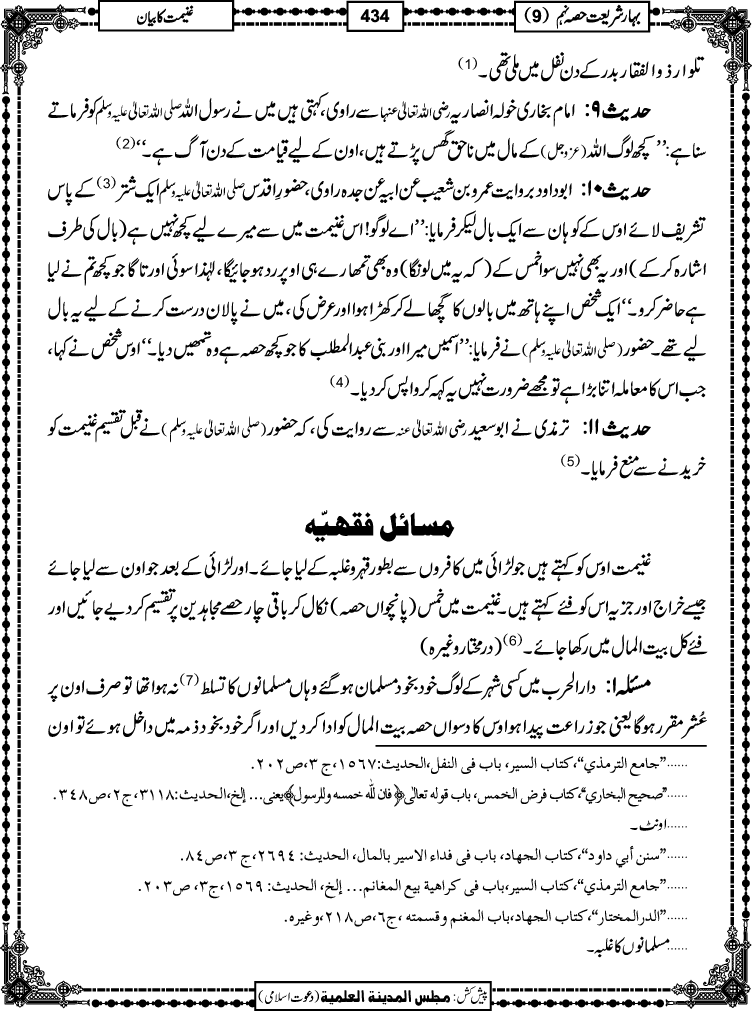 بہار شریعت حصہ نہم (9)
434
غنیمت کا بیان
تلوار ذوالفقار بدر کے دن نفل میں ملی تھی۔(1)
حدیث ۹: امام بخاری خولہ انصاریہ رضی اللہ تعالیٰ عنہا سے راوی، کہتی ہیں میں نے رسول اللہ صلی اللہ تعالیٰ علیہ وسلم کو فرماتے
سنا ہے: ’’کچھ لوگ اللہ (عزوجل) کے مال میں ناحق گھس پڑتے ہیں، اون کے لیے قیامت کے دن آگ ہے۔‘‘(2)
حدیث ۱۰: ابو داود بروایت عمرو بن شعیب عن ابیہ عن جدہ راوی، حضورِ اقدس صلی اللہ تعالیٰ علیہ وسلم ایک شتر(3) کے پاس
تشریف لائے اوس کے کوہان سے ایک بال لیکر فرمایا: ’’اے لوگو! اس غنیمت میں سے میرے لیے کچھ نہیں ہے (بال کی طرف
اشارہ کر کے) اور یہ بھی نہیں سوا خمس کے (کہ یہ میں لونگا) وہ بھی تمھارے ہی اوپر رد ہو جائیگا، لہٰذا سوئی اور تاگا جو کچھ تم نے لیا
ہے حاضر کرو۔‘‘ ایک شخص اپنے ہاتھ میں بالوں کا گچھا لے کر کھڑا ہوا اور عرض کی، میں نے پالان درست کرنے کے لیے یہ بال
لیے تھے۔ حضور (صلی اللہ تعالیٰ علیہ وسلم) نے فرمایا: ’’اسمیں میرا اور بنی عبدالمطلب کا جو کچھ حصہ ہے وہ تمھیں دیا۔‘‘ اوس شخص نے کہا،
جب اس کا معاملہ اتنا بڑا ہے تو مجھے ضرورت نہیں یہ کہہ کر واپس کر دیا۔(4)
حدیث ۱۱: ترمذی نے ابو سعید رضی اللہ تعالیٰ عنہ سے روایت کی، کہ حضور (صلی اللہ تعالیٰ علیہ وسلم) نے قبلِ تقسیم غنیمت کو
خریدنے سے منع فرمایا۔(5)
مسائل فقہیّہ
غنیمت اوس کو کہتے ہیں جو لڑائی میں کافروں سے بطور قہر و غلبہ کے لیا جائے۔ اور لڑائی کے بعد جو اون سے لیا جائے
جیسے خراج اور جزیہ اس کو فئے کہتے ہیں۔ غنیمت میں خمس (پانچواں حصہ) نکال کر باقی چار حصے مجاہدین پر تقسیم کر دیے جائیں اور
فئے کل بیت المال میں رکھا جائے۔(6) (درمختار وغیرہ)
مسئلہ ۱: دارالحرب میں کسی شہر کے لوگ خود بخود مسلمان ہو گئے وہاں مسلمانوں کا تسلط(7) نہ ہوا تھا تو صرف اون پر
عُشر مقرر ہوگا یعنی جو زراعت پیدا ہو اوس کا دسواں حصہ بیت المال کو ادا کر دیں اور اگر خود بخود ذمہ میں داخل ہوئے تو اون
......”جامع الترمذي“،كتاب السير، باب فى النفل،الحديث:١٥٦٧،ج٣،ص٢٠٢.
......”صحيح البخاري“،كتاب فرض الخمس، باب قوله تعالى﴿فان للّٰه خمسه وللرسول﴾يعنى... إلخ،الحديث:٣١١٨،ج٢،ص٣٤٨.
......اونٹ۔
......”سنن أبي داود“،كتاب الجهاد، باب فى فداء الاسير بالمال، الحديث: ٢٦٩٤،ج٣،ص٨٤.
......”جامع الترمذي“، كتاب السير،باب فى كراهية بيع المغانم... إلخ، الحديث: ١٥٦٩،ج٣، ص٢٠٣.
......”الدرالمختار“، كتاب الجهاد،باب المغنم وقسمته ،ج٦،ص٢١٨،وغيره.
......مسلمانوں کا غلبہ۔
پیش کش: مجلس المدینۃ العلمیۃ (دعوت اسلامی)